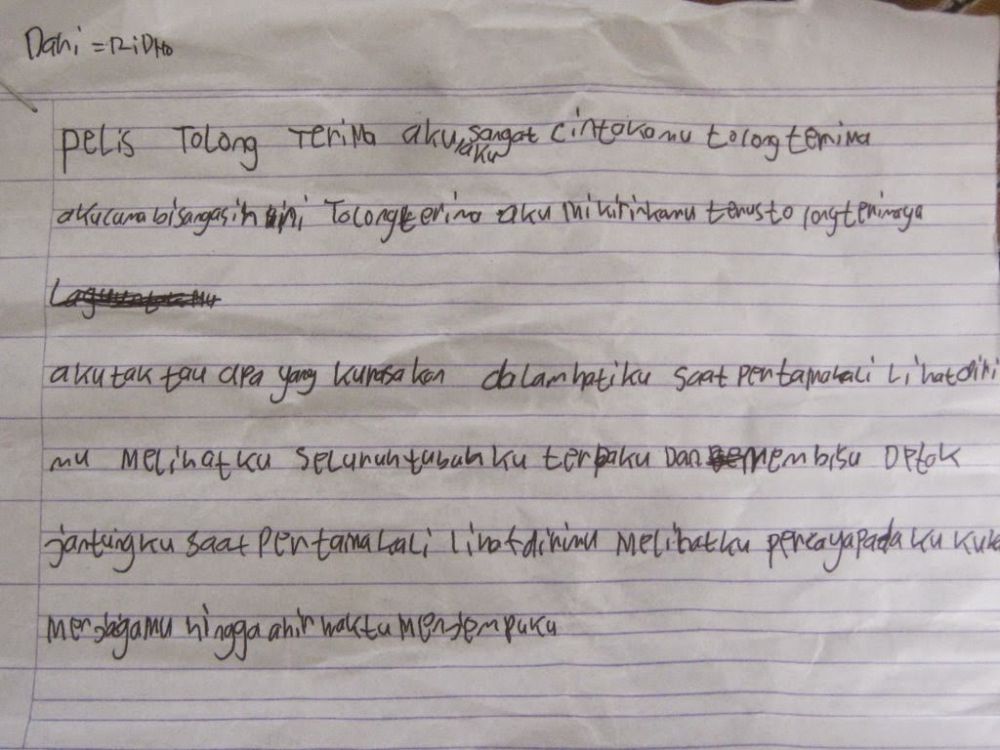 Dari = RiDHo
pelis Tolong TeriMa aku, aku sangat cintakamu tolong terima
akucuma bisangasih ini Tolong terima aku mikirinkamu terusto longterimaya
akutak tau apa yang kurasakan dalamhatiku saat pertamakali Lihatdiri
mu Melihatku seluruhtubuhku terpaku Dan Membisu Detak
jantungku saat Pertamakali lihatdirimu Melihatku percayapadaku
Menjagamu hingga ahir waktu Menjempuku